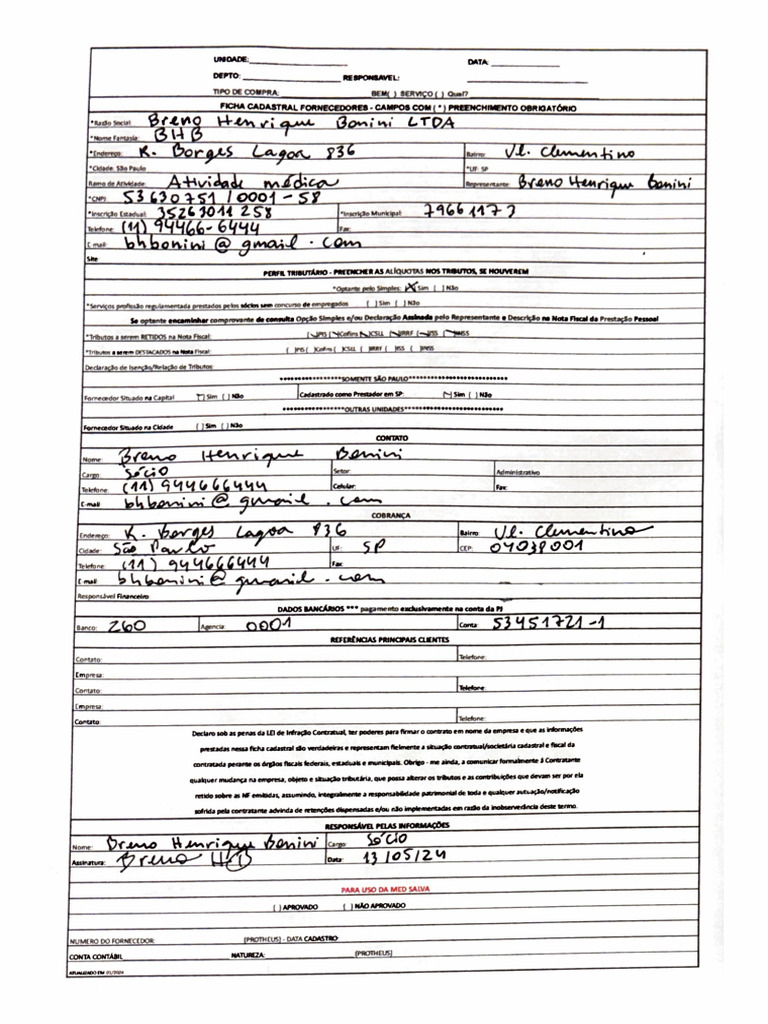 UNIDADE: DATA:
DEPTO: RESPONSAVEL:
TIPO DE COMPRA: BEM( ) SERVIÇO ( ) Qual?
FICHA CADASTRAL FORNECEDORES - CAMPOS COM ( * ) PREENCHIMENTO OBRIGATÓRIO
*Razão Social: Breno Henrique Bonini LTDA
*Nome Fantasia: BHB
*Endereço: R. Borges Lagoa 836 Bairro: Vl. Clementino
*Cidade: São Paulo *UF: SP
Ramo de Atividade: Atividade médica Representante: Breno Henrique Bonini
*CNPJ: 53630751/0001-58
*Inscrição Estadual: 35263011258 *Inscrição Municipal: 79661173
Telefone: (11) 94466-6444 Fax:
E-mail: bhbonini@gmail.com
Site:
PERFIL TRIBUTÁRIO - PREENCHER AS ALÍQUOTAS NOS TRIBUTOS, SE HOUVEREM
*Optante pelo Simples: (X Sim ( ) Não
*Serviços profissão regulamentada prestados pelos sócios sem concurso de empregados ( ) Sim ( ) Não
Se optante encaminhar comprovante de consulta Opção Simples e/ou Declaração Assinada pelo Representante e Descrição na Nota Fiscal da Prestação Pessoal
*Tributos a serem RETIDOS na Nota Fiscal: PIS Cofins CSLL IRRF ISS INSS
*Tributos a serem DESTACADOS na Nota Fiscal: ( )PIS ( )Cofins ( )CSLL ( )IRRF ( )ISS ( )INSS
Declaração de Isenção/Relação de Tributos:
********************SOMENTE SÃO PAULO****************************
Fornecedor Situado na Capital Sim ( ) Não Cadastrado como Prestador em SP: Sim ( ) Não
*******************OUTRAS UNIDADES***************************
Fornecedor Situado na Cidade ( ) Sim ( ) Não
CONTATO
Nome: Breno Henrique Bonini
Cargo: Sócio Setor: Administrativo
Telefone: (11) 944666444 Celular: Fax:
E-mail: bhbonini@gmail.com
COBRANÇA
Endereço: R. Borges Lagoa 836 Bairro: Vl. Clementino
Cidade: São Paulo UF: SP CEP: 04038001
Telefone: (11) 944666444 Fax:
E-mail: bhbonini@gmail.com
Responsável Financeiro
DADOS BANCÁRIOS *** pagamento exclusivamente na conta da PJ
Banco: 260 Agencia: 0001 Conta: 53451721-1
REFERÊNCIAS PRINCIPAIS CLIENTES
Contato: Telefone:
Empresa:
Contato: Telefone:
Empresa:
Contato: Telefone:
Declaro sob as penas da LEI de Infração Contratual, ter poderes para firmar o contrato em nome da empresa e que as informações
prestadas nessa ficha cadastral são verdadeiras e representam fielmente a situação contratual/societária cadastral e fiscal da
contratada perante os órgãos fiscais federais, estaduais e municipais. Obrigo - me ainda, a comunicar formalmente à Contratante
qualquer mudança na empresa, objeto e situação tributária, que possa alterar os tributos e as contribuições que devam ser por ela
retido sobre as NF emitidas, assumindo, integralmente a responsabilidade patrimonial de toda e qualquer autuação/notificação
sofrida pela contratante advinda de retenções dispensadas e/ou não implementadas em razão da inobservância deste termo.
RESPONSÁVEL PELAS INFORMAÇÕES
Nome: Breno Henrique Bonini Cargo: Sócio
Assinatura: Breno HB Data: 13/05/24
PARA USO DA MED SALVA
( ) APROVADO ( ) NÃO APROVADO
NUMERO DO FORNECEDOR: (PROTHEUS) - DATA CADASTRO
CONTA CONTÁBIL NATUREZA: (PROTHEUS)
ATUALIZADO EM 01/2024